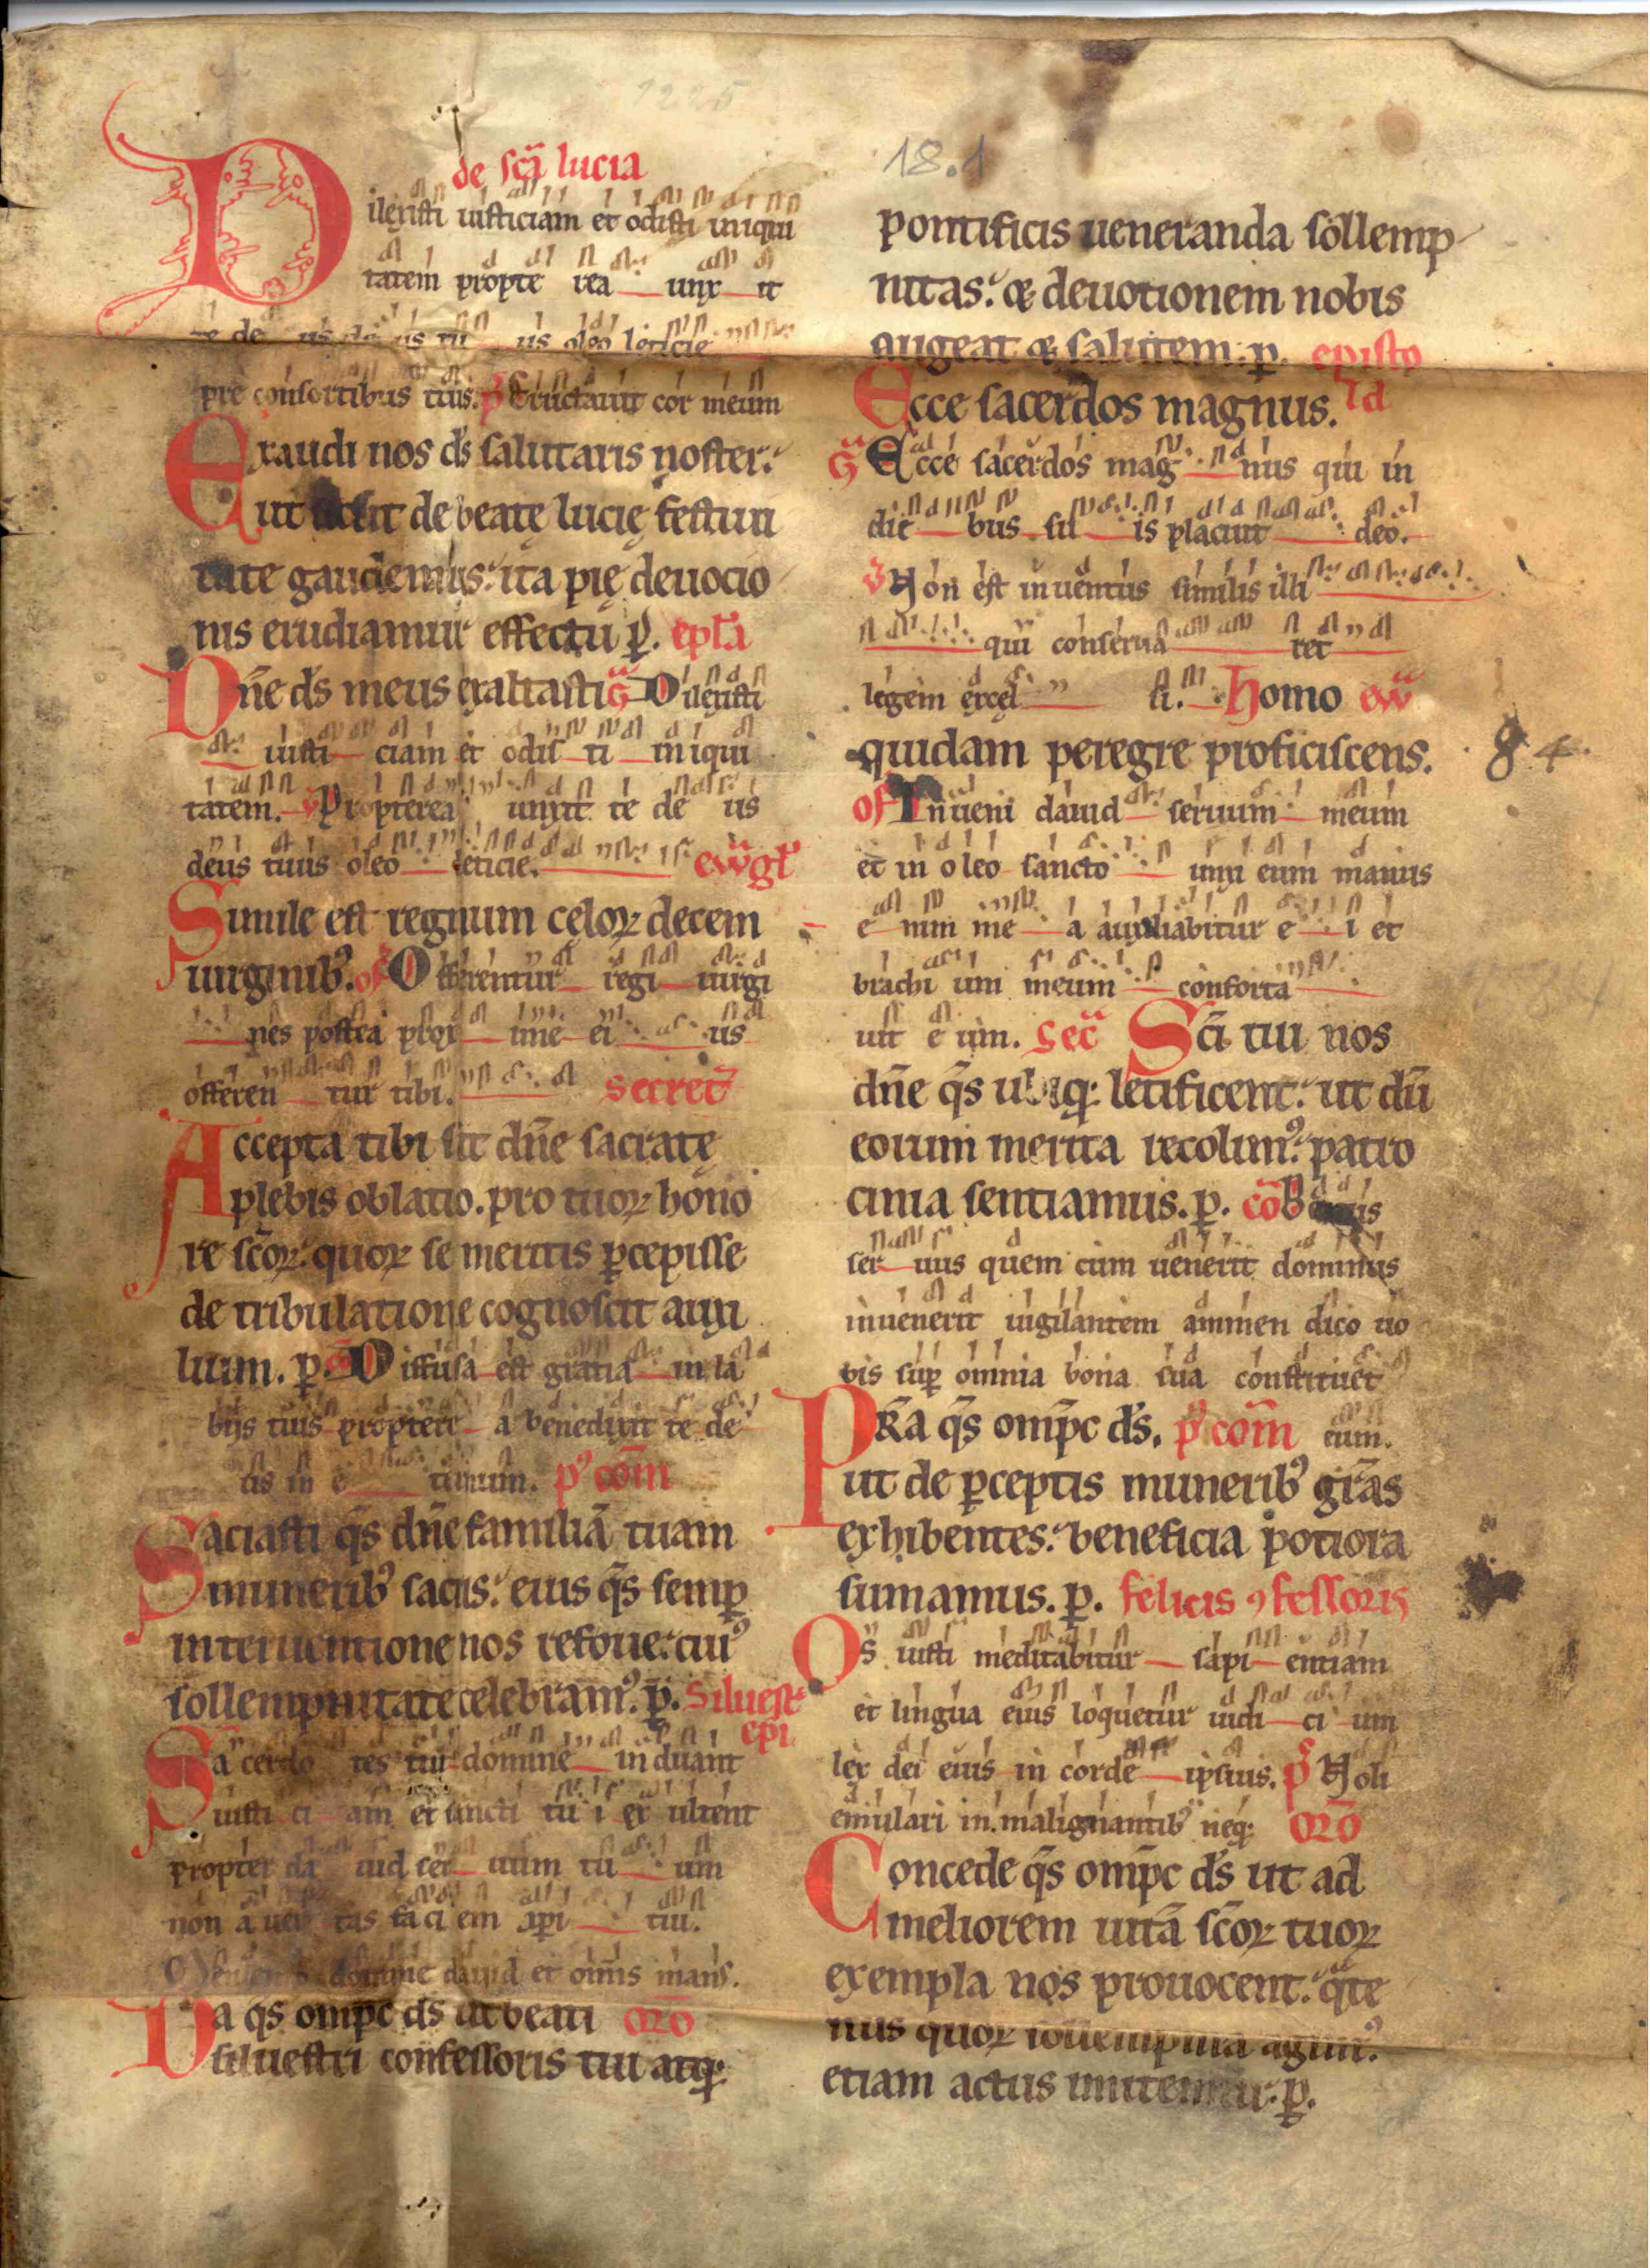 1225
18.1
de sc̄a lucia
Dilexisti iusticiam et odisti iniqui
tatem propte rea unx it
te de us de us tu us oleo leticie
pre consortibus tuis. ps Eructauit cor meum
Exaudi nos ds̄ salutaris noster.
ut de beatę lucię festiui
tate gaudemus: ita pię deuocio
nis erudiamur effectu p. epl̄a
Dn̄e ds̄ meus exaltasti G̃ Dilexisti
iusti ciam et odis ti iniqui
tatem. V Propterea unxit te de us
deus tuus oleo leticie. ew̄gl̄
Simile est regnum cęloꝝ decem
uirginibꝰ. of Offerentur regi uirgi
nes postea prox ime ei us
offeren tur tibi. secret̄
Accepta tibi sit dn̄e sacratę
plebis oblatio. pro tuoꝝ hono
re sc̄oꝝ: quoꝝ se meritis ꝑcepisse
de tribulatione cognoscit auxi
lium. p. cō Diffusa est gratia in la
bijs tuis propter a benedixit te de
us in e ternum. pꝰ com̄
Saciasti qs̄ dn̄e familiā tuam
muneribꝰ sacris: eius qs̄ semꝑ
interuentione nos refoue: cuiꝰ
sollempnitate celebramꝰ. p. Siluest
epi.
Sa cerdo tes tui domine induant
iusti ci am et sancti tu i ex ultent
propter da uid ser uum tu um
non a uer tas faci em xp̄i tui.
domine dauid et om̄is mans.
Da qs̄ omp̄c ds̄ ut beati or̄o
siluestri confessoris tui atqꝫ
pontificis ueneranda sollemp
nitas: & deuotionem nobis
augeat & salutem. p. episto
Ecce sacerdos magnus. la
G̃ Ecce sacerdos mag nus qui in
die bus su is placuit deo.
V Non est inuentus similis illi
qui conserua ret
legem excel si. Homo ew̄
quidam peregre proficiscens.
84.
of Inueni dauid seruum meum
et in oleo sancto unxi eum manus
e nim me a auxiliabitur e i et
brachi um meum conforta
uit e um. Sec̄ Sc̄i tui nos
dn̄e qs̄ ubiqꝫ letificent: ut dū
eorum merita recolimꝰ: patro
cinia sentiamus. p. cō Beatus
ser uus quem cum uenerit dominus
inuenerit uigilantem ammen dico uo
bis suꝑ omnia bona sua constituet
Pr̄a qs̄ omp̄c ds̄. pꝰ com̄ eum.
ut de ꝑceptis muneribꝰ gr̄as
exhibentes: beneficia potiora
sumamus. p. felicis ꝯfessoris
Os iusti meditabitur sapi entiam
et lingua eius loquetur iudi ci um
lex dei eius in corde ipsius. ps Noli
emulari in malignantibꝰ neqꝫ or̄o
Concede qs̄ omp̄c ds̄ ut ad
meliorem uitā sc̄oꝝ tuoꝝ
exempla nos prouocent: qͣte
nus quoꝝ sollempnia agimꝰ:
etiam actus imitemur. p.